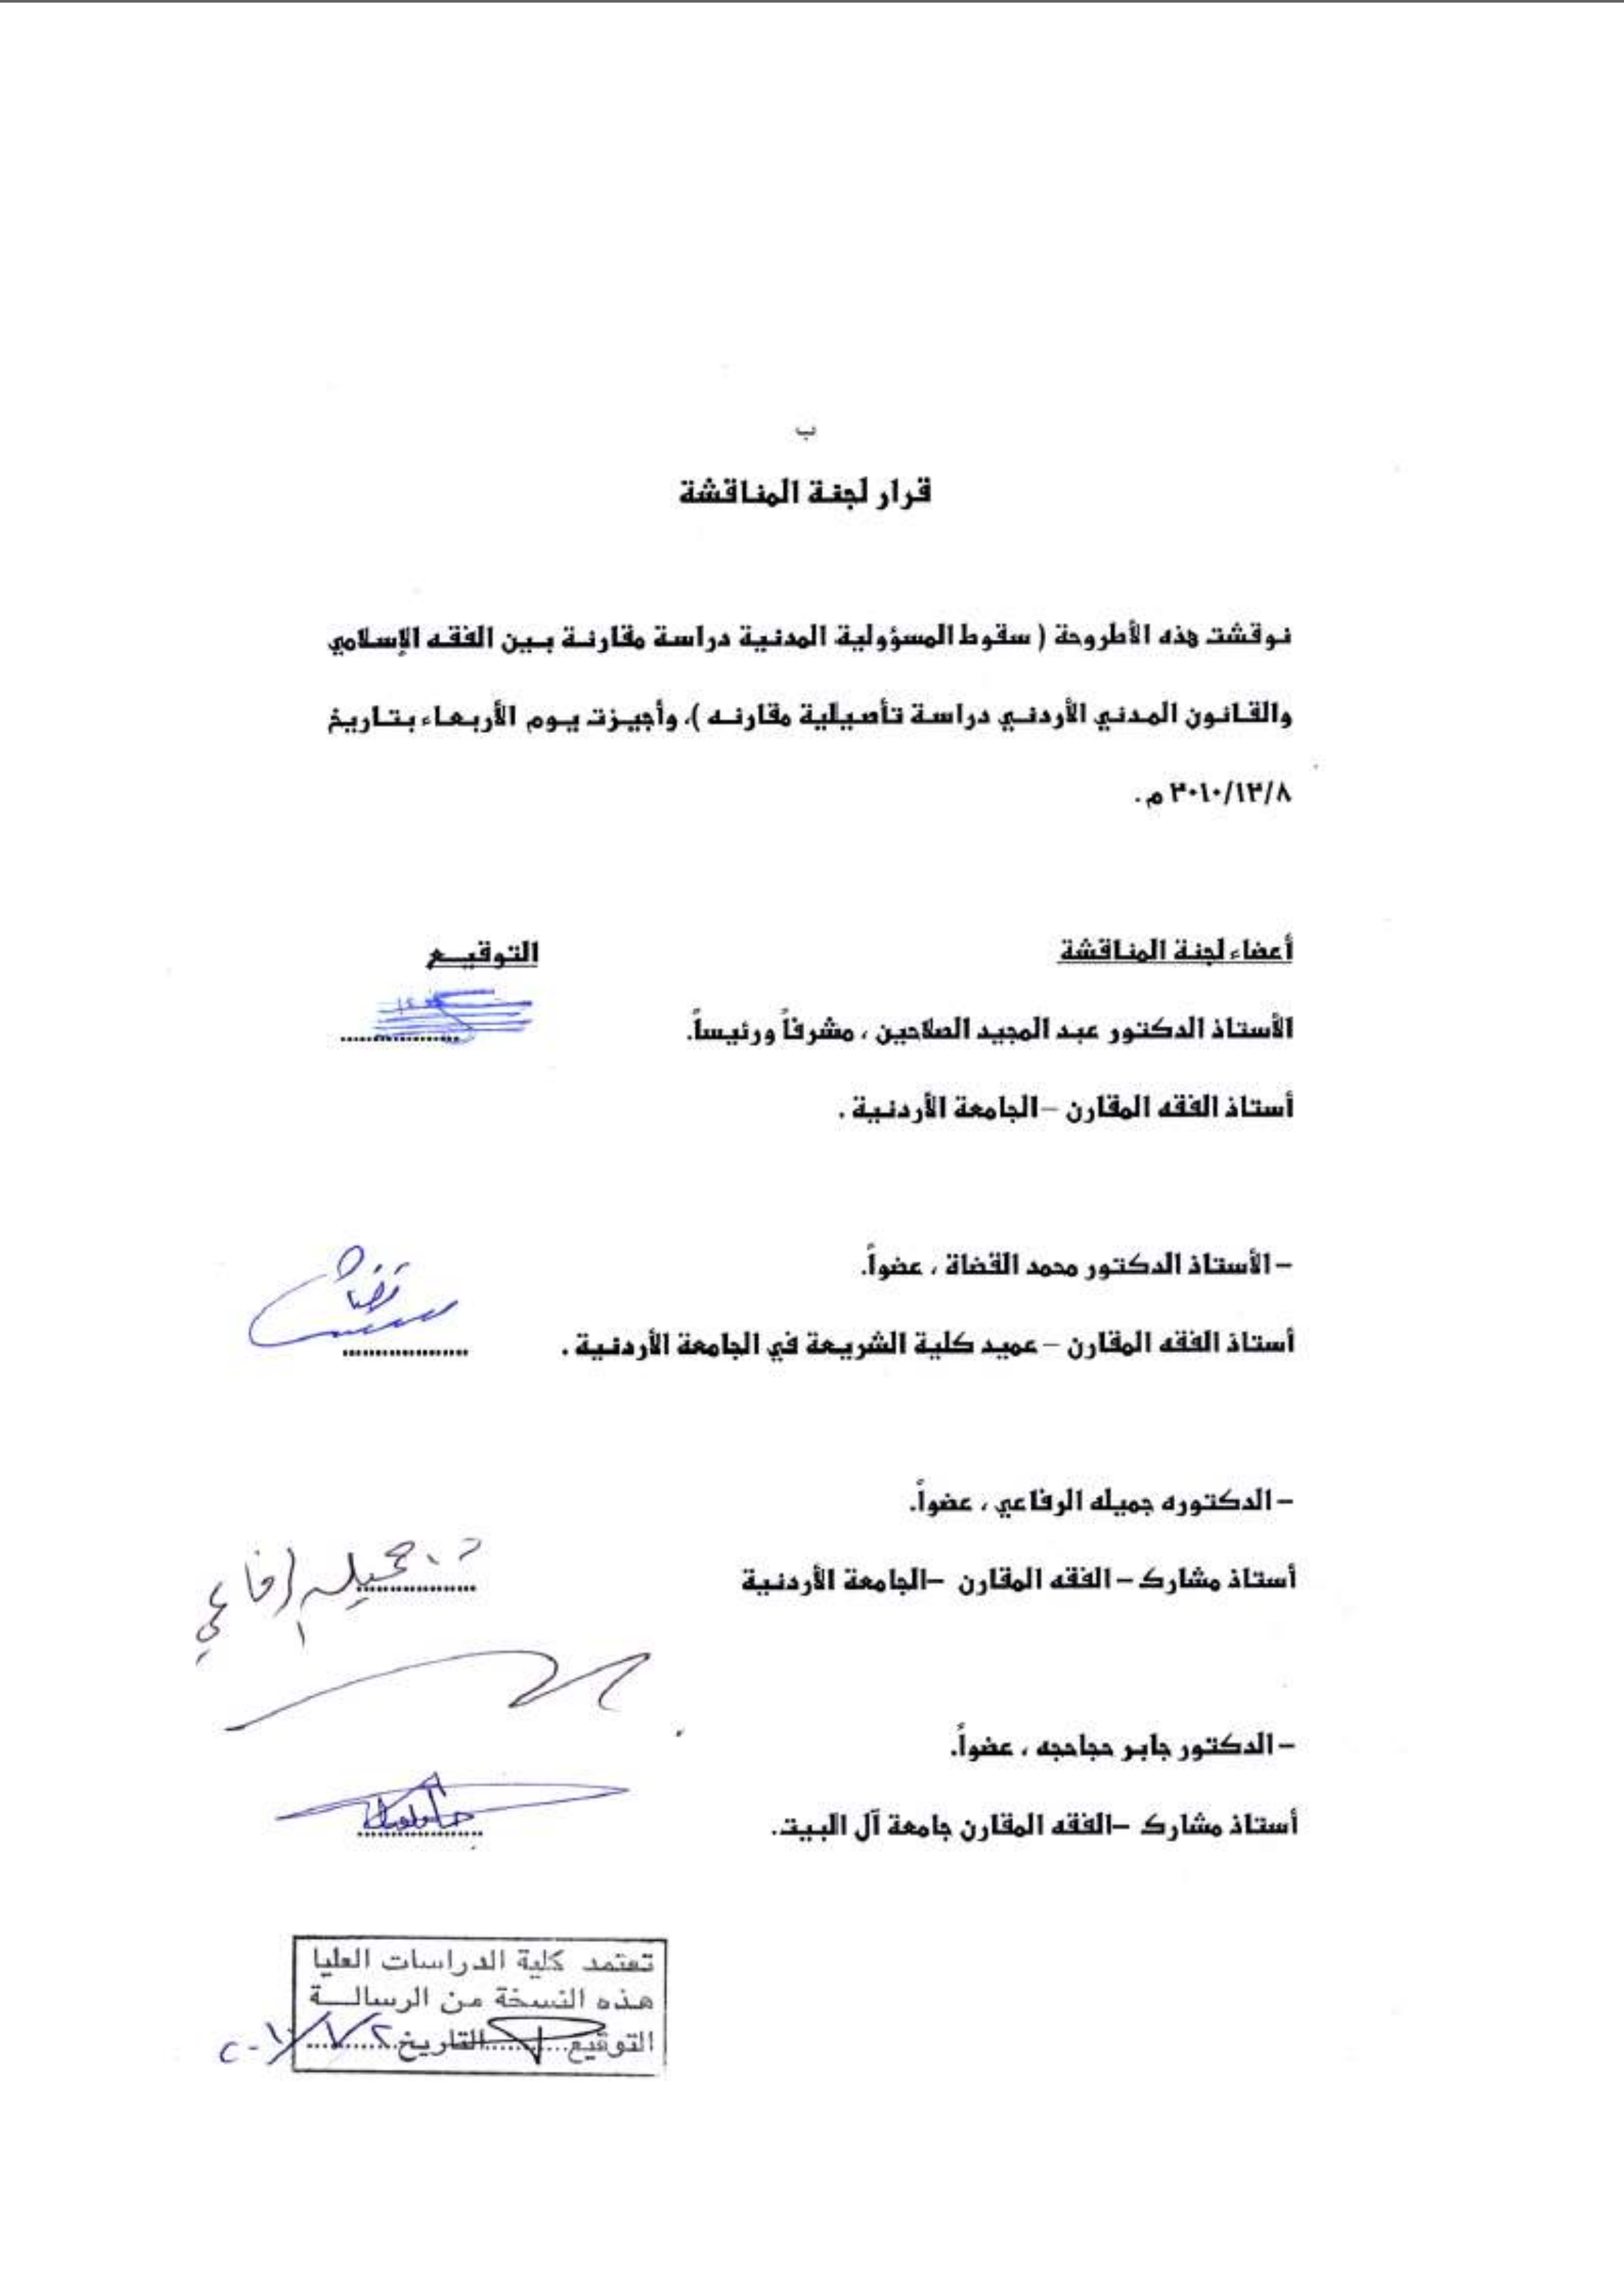 ب
قرار لجنة المناقشة
نوقشت هذه الأطروحة ( سقوط المسؤولية المدنية دراسة مقارنة بين الفقه الإسلامي
والقانون المدني الأردني دراسة تأصيلية مقارنه )، وأجيزت يوم الأربعاء بتاريخ
٢٠١٠/١٢/٨ م .
أعضاء لجنة المناقشة
التوقيع
الأستاذ الدكتور عبد المجيد الصلاحين ، مشرفاً ورئيساً.
أستاذ الفقه المقارن –الجامعة الأردنية .
– الأستاذ الدكتور محمد القضاة ، عضواً.
أستاذ الفقه المقارن – عميد كلية الشريعة في الجامعة الأردنية .
– الدكتوره جميله الرفاعي ، عضواً.
أستاذ مشارك – الفقه المقارن –الجامعة الأردنية
د. جميله الرفاعي
– الدكتور جابر حجاحجه ، عضواً.
أستاذ مشارك –الفقه المقارن جامعة آل البيت.
تعتمد كلية الدراسات العليا
هذه النسخة من الرسالة
التوقيع......التاريخ......